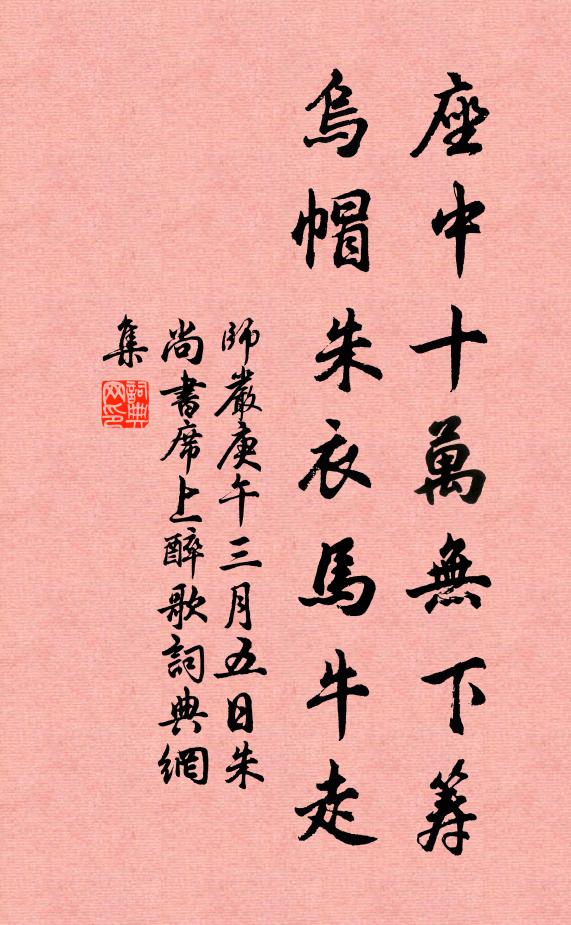 座中十萬無下筹
烏帽朱衣馬牛走
師嚴庚午三月五日朱
尚書席上醉歌詞典網
集
詞典网印